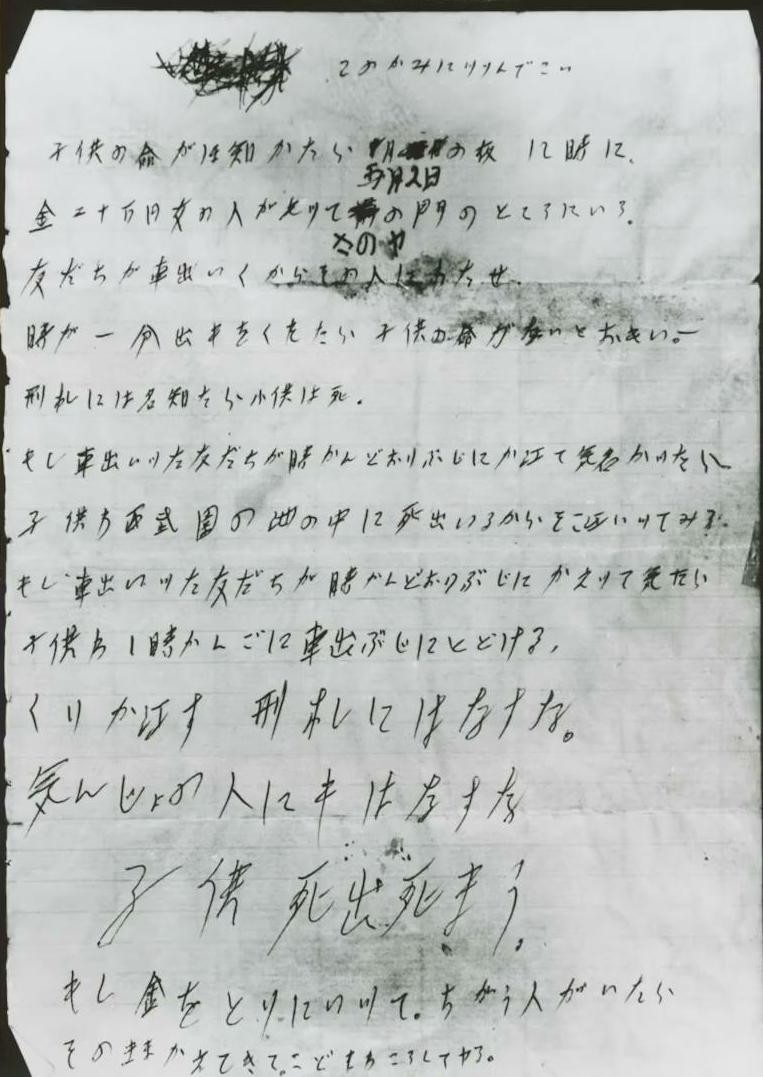 このかみにツツんでこい
子供の命がほ知かたら の夜12時に、
五月2日
金二十万円女の人がもツて の門のところにいろ。
さのヤ
友だちが車出いくからその人にわたせ
時が一分出もをくれたら子供の命がないとおもい。
刑札には名知たら小供は死。
もし車出いツた友だちが時かんどおりぶじにか江て気名かツたら
子供わ西武園の池の中に死出いるからそこ江いツてみろ。
もし車出いツた友だちが時かんどおりぶじにかえツて気たら
子供わ1時かんごに車出ぶじにとどける、
くりか江す 刑札にはなすな。
気んじょの人にもはなすな
子供死出死まう。
もし金をとりにいツて。ちがう人がいたら
そのままかえてきて。こどもわころしてヤる。